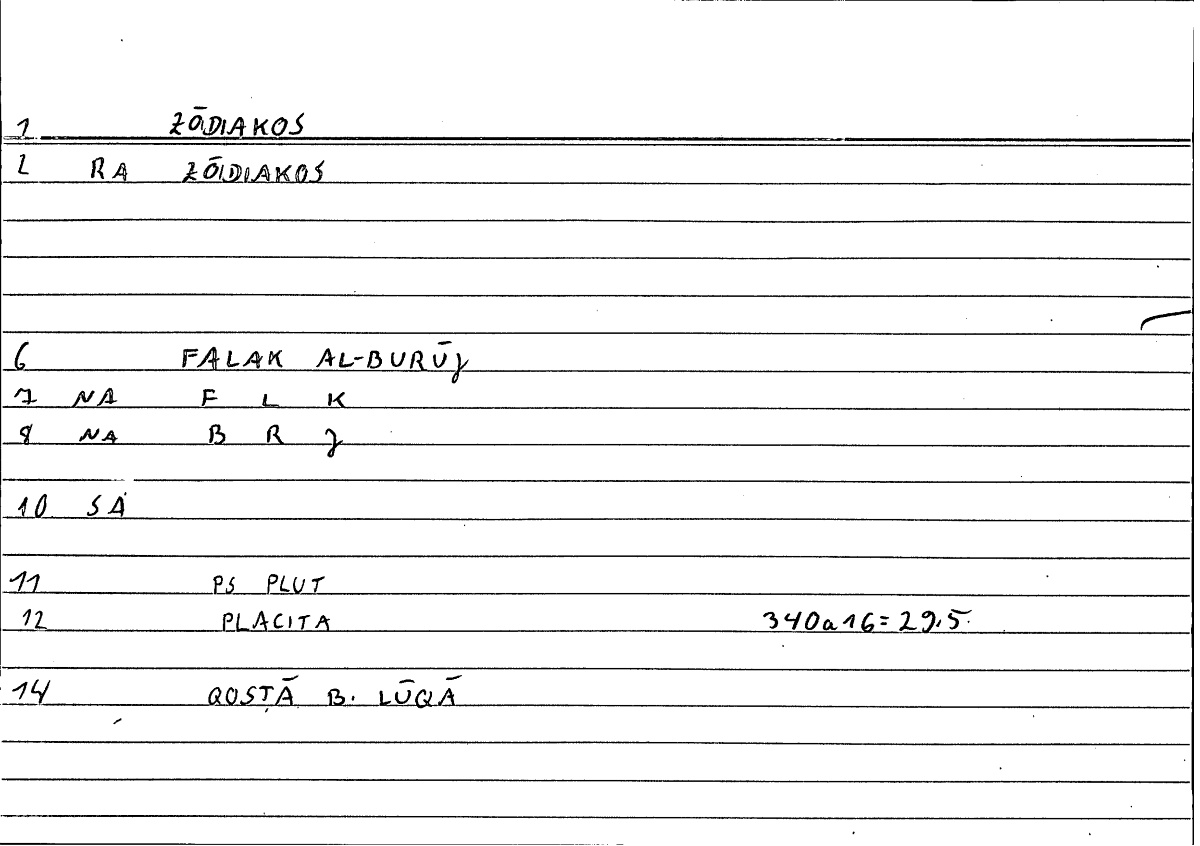 1 ZŌDIAKOS
2 RA ZŌIDIAKOS
6 FALAK AL-BURŪJ
7 NA F L K
8 NA B R J
10 SA
11 PS PLUT
12 PLACITA 340a16=29,5.
14 QOSṬĀ B. LŪQĀ